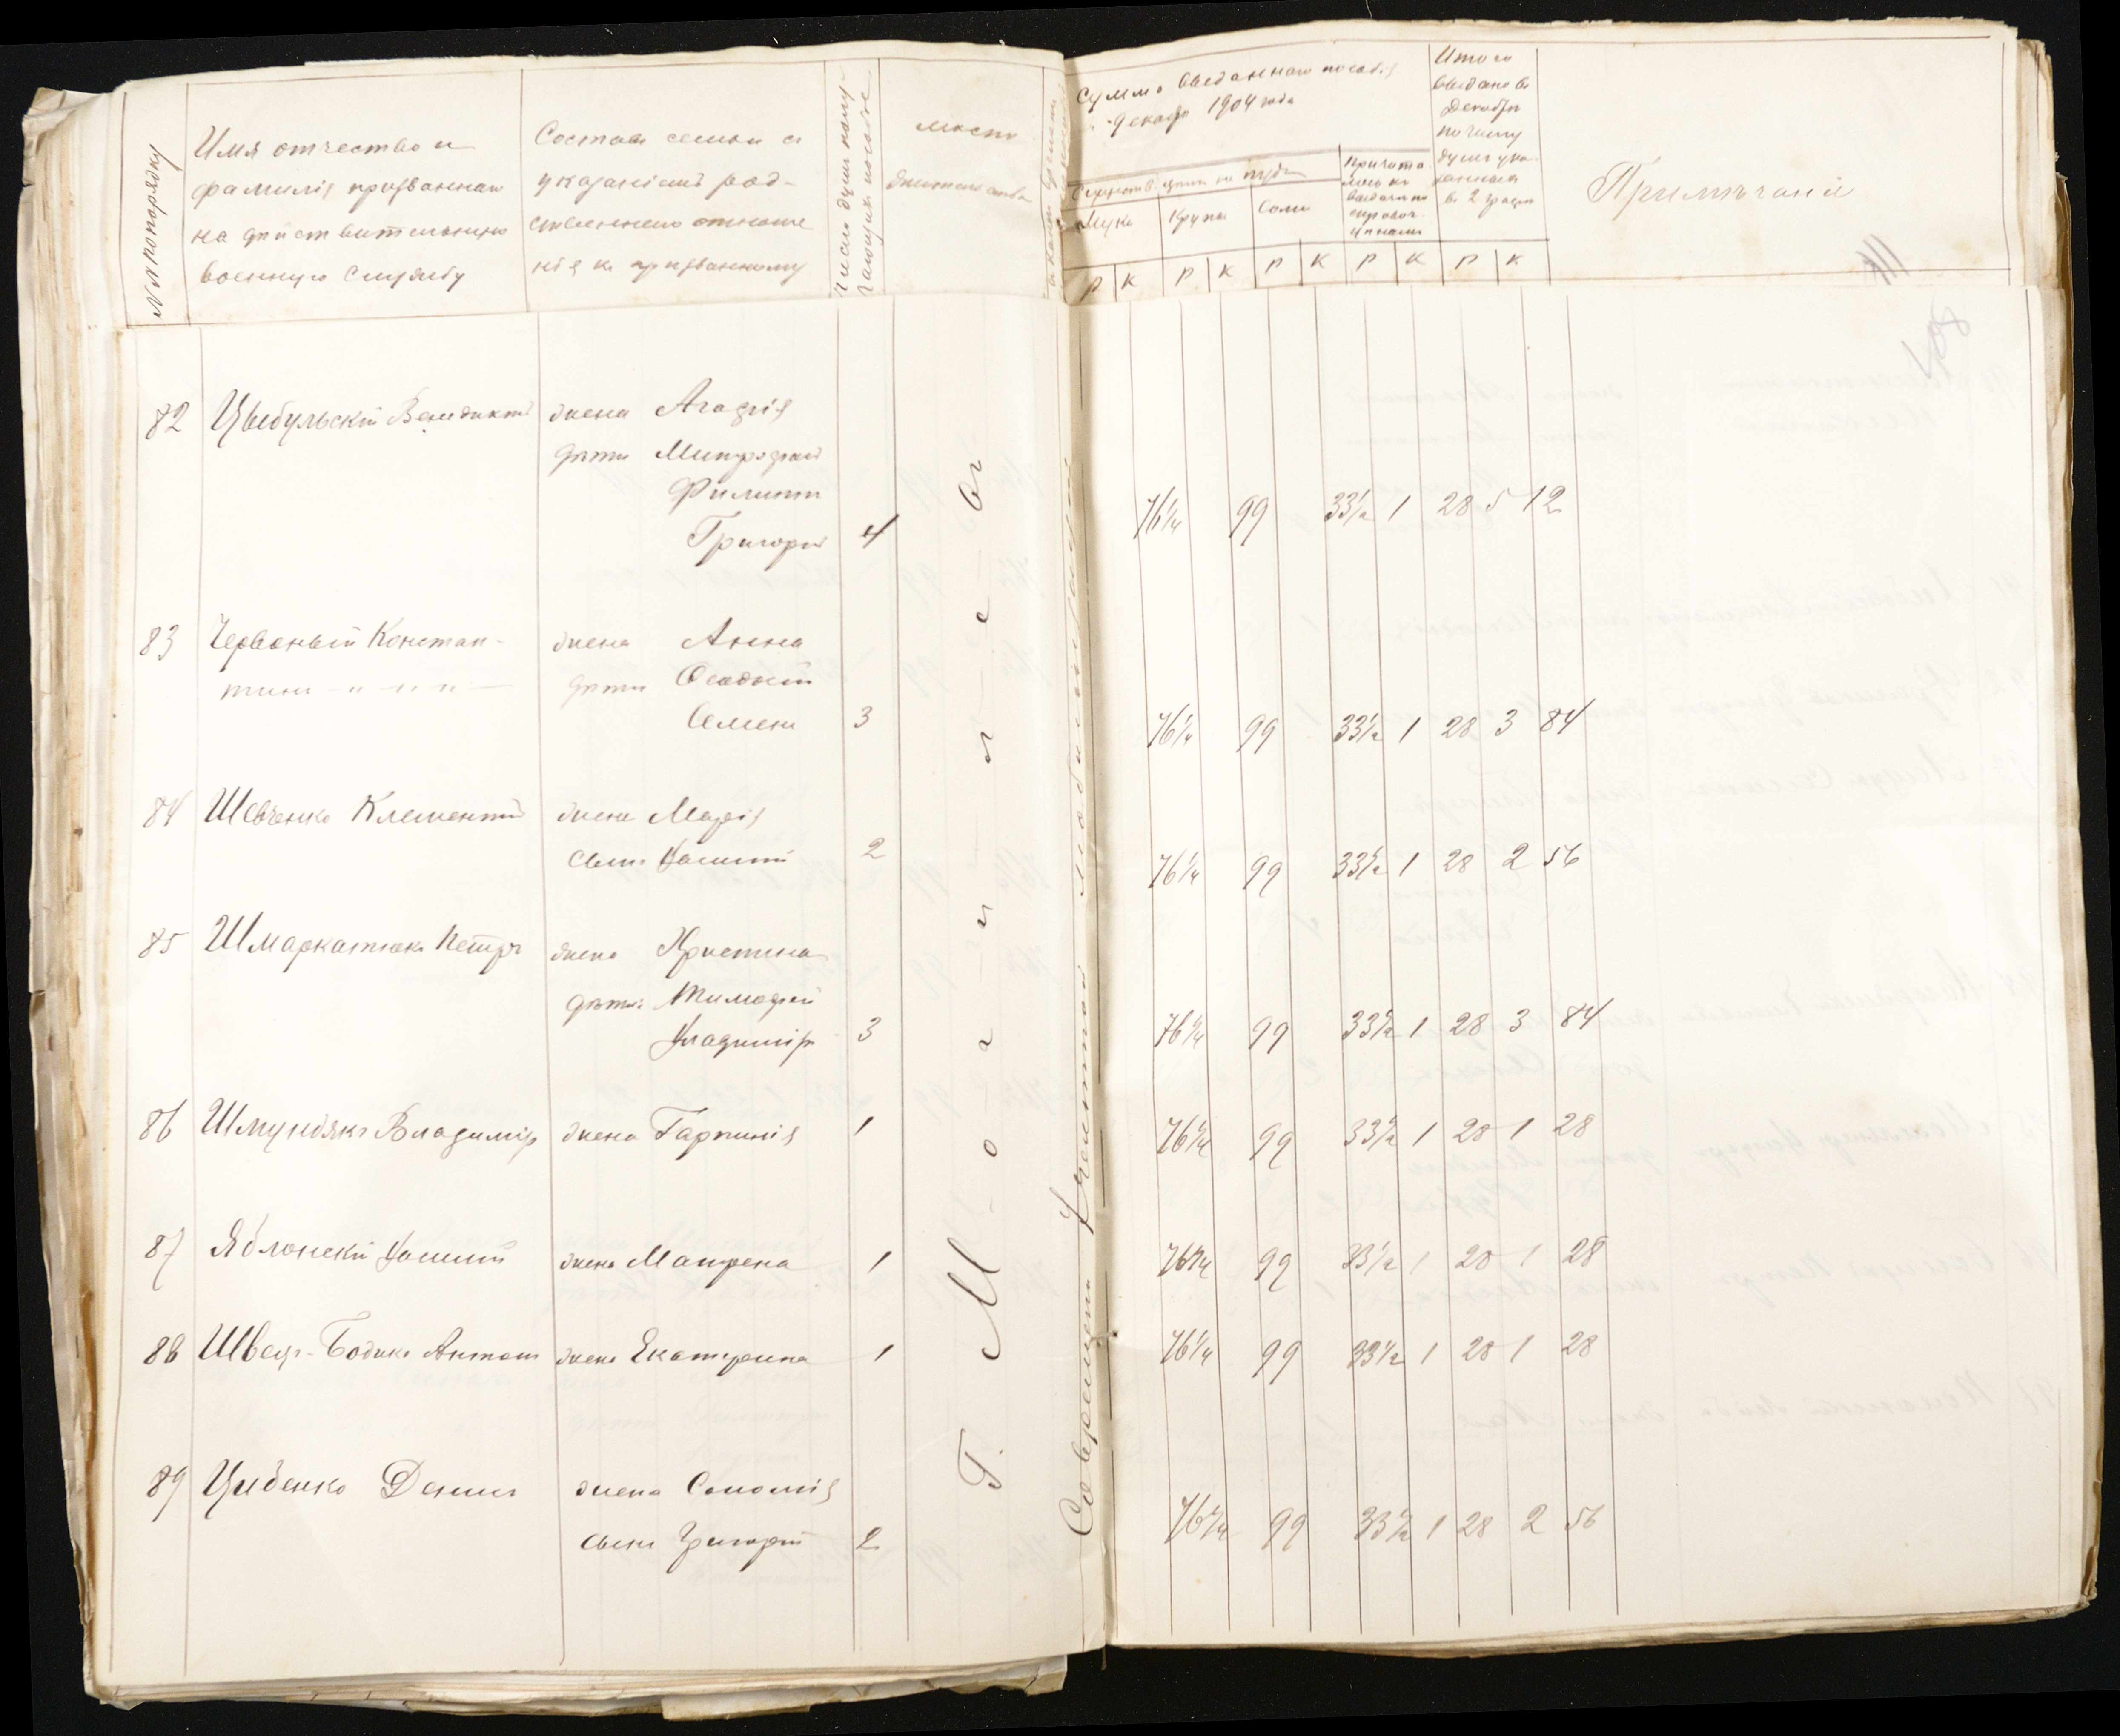 №№ по порядку
Имя отчество и
фамилія призваннаго
на дѣйствительную
военную службу
Составъ семьи съ
указаніемъ род-
ственнаго отноше
нія къ призванному
Число душъ полу-
чающихъ пособіе
Мѣсто
жительства
Сумма выданнаго пособія
декабрь 1904 года
цѣны на пудъ
Мука
Крупа
Соль
Причита
лось къ
выдачѣ по
справоч.
цѣнамъ
Итого
выдано въ
Декабрѣ
по числу
душъ ука-
занныхъ
в 2 графѣ
Примѣчаніе
р к р к р к р к р к
82 Цыбульскій Венедиктъ жена Агафія
дѣти Митрофанъ
Филиппъ
Григорій 4 76¼ 99 33½ 1 28 5 12
83 Червоный Констан-
тинъ жена Анна
дѣти Феодосій
Семенъ 3 76¼ 99 33½ 1 28 3 84
84 Шевченко Клементій жена Марія
сынъ 2 76¼ 99 33½ 1 28 2 56
85 Петръ жена Христина
дѣти: Тимофей
Владиміръ 3 76¼ 99 33½ 1 28 3 84
86 Шмундякъ Владиміръ жена Гарпинія 1 76¼ 99 33½ 1 28 1 28
87 Яблонскій жена Матрена 1 76¼ 99 33½ 1 28 1 28
88 Швец- Антонъ жена Екатерина 1 76¼ 99 33½ 1 28 1 28
89 Цибенко Денисъ жена Соломія
сынъ Григорій 2 76¼ 99 33½ 1 28 2 56
Г. М-о-г-и-л-е-въ